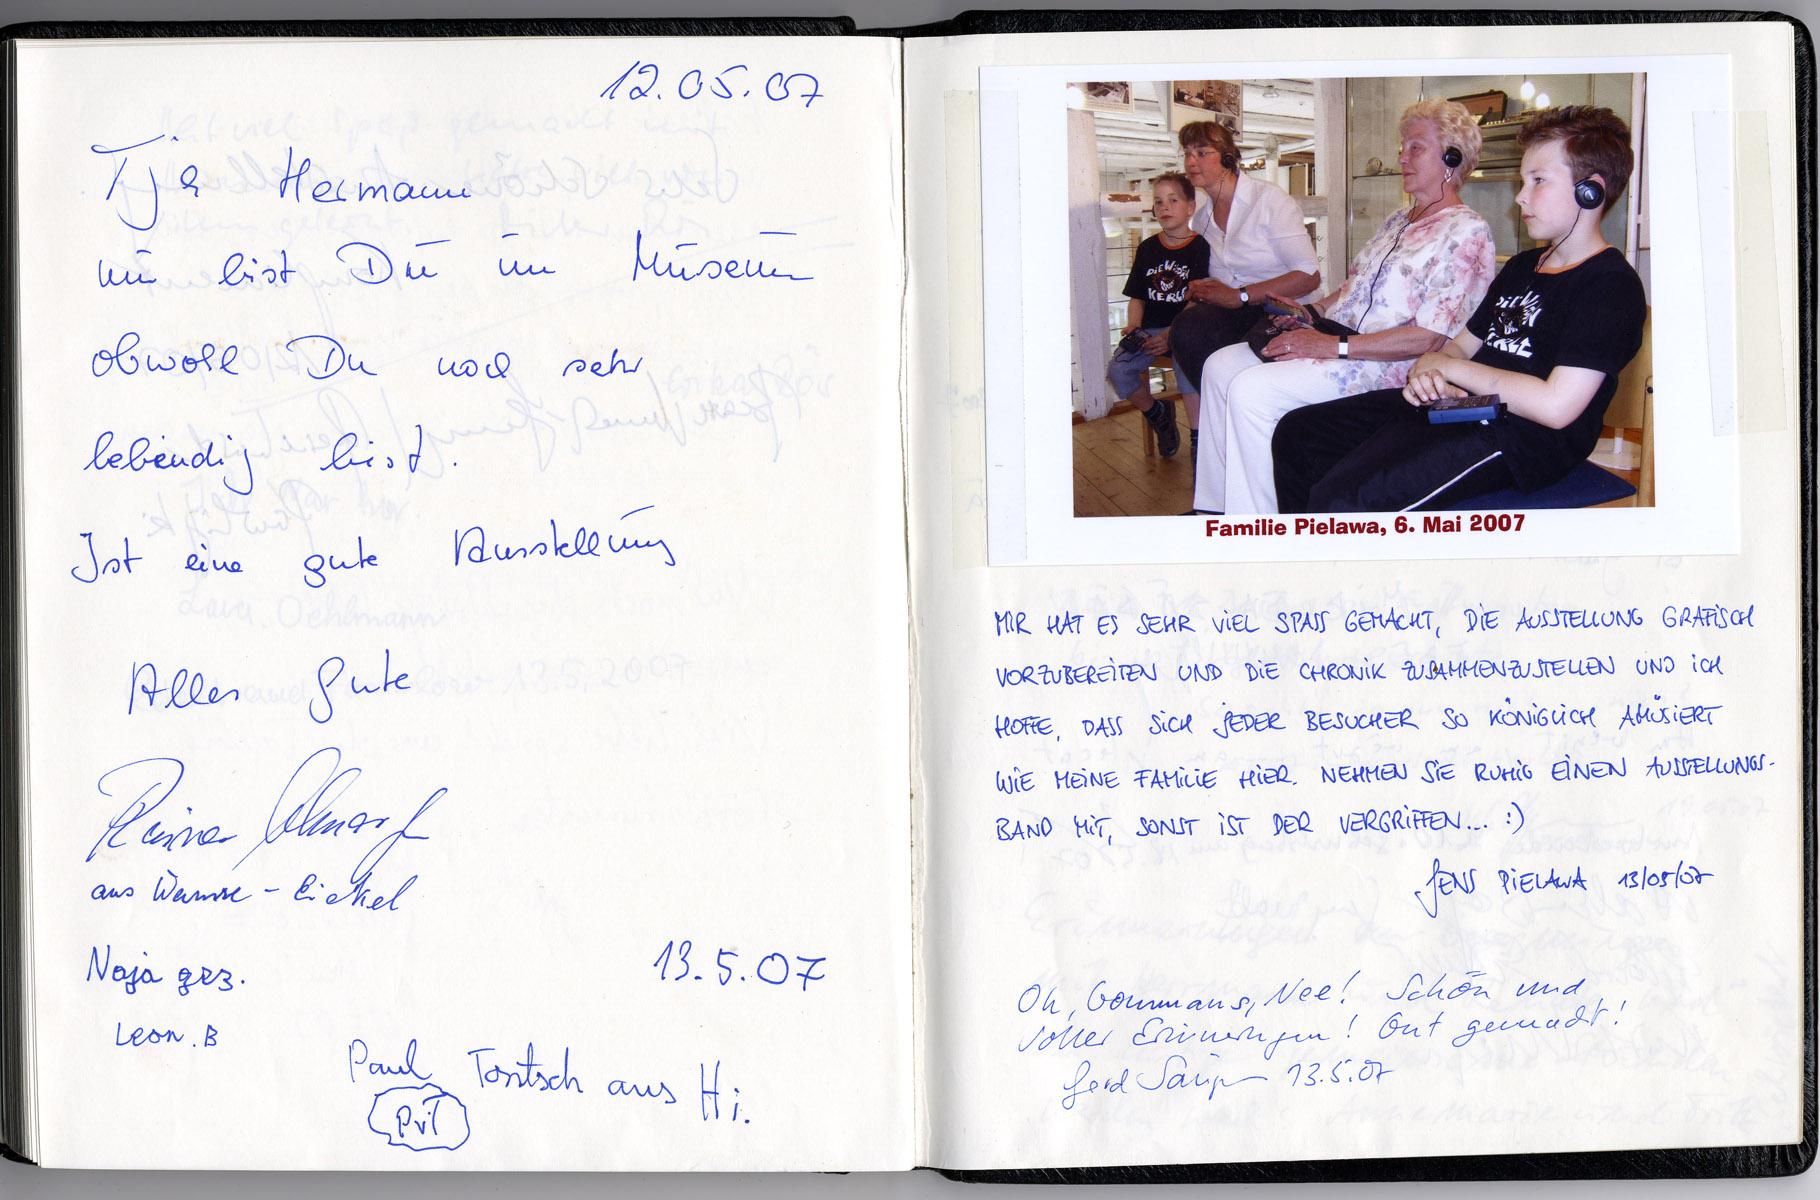 12.05.07
Tja Hermann
nu bist Du im Museum
obwohl Du noch sehr
lebendig bist.
Ist eine gute Ausstellung
Alles Gute
Rainer
aus Wanne-Eickel
Naja grz. 13.5.07
Leon. B
Paul Tontsch aus Hi.
PvT
DIE WILDEN
KERLE
DIE WILDEN
KERLE
Familie Pielawa, 6. Mai 2007
MIR HAT ES SEHR VIEL SPASS GEMACHT, DIE AUSSTELLUNG GRAFISCH
VORZUBEREITEN UND DIE CHRONIK ZUSAMMENZUSTELLEN UND ICH
HOFFE, DASS SICH JEDER BESUCHER SO KÖNIGLICH AMÜSIERT
WIE MEINE FAMILIE HIER. NEHMEN SIE RUHIG EINEN AUSSTELLUNGS-
BAND MIT, SONST IST DER VERGRIFFEN... :)
JENS PIELAWA 13/05/07
Oh, Nee! Schön und
voller Erinnerungen! Gut gemacht!
Gerd 13.5.07
Lara. Oehlmann
13.5.2007